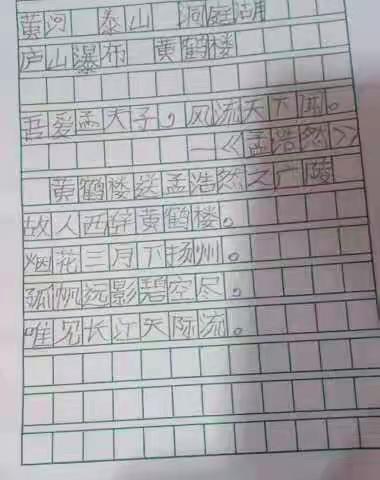 黄河 泰山 洞庭湖
庐山瀑布 黄鹤楼
吾爱孟夫子，风流天下闻。
—《孟浩然》
黄鹤楼送孟浩然之广陵
故人西辞黄鹤楼。
烟花三月下扬州。
孤帆远影碧空尽，
唯见长江天际流。